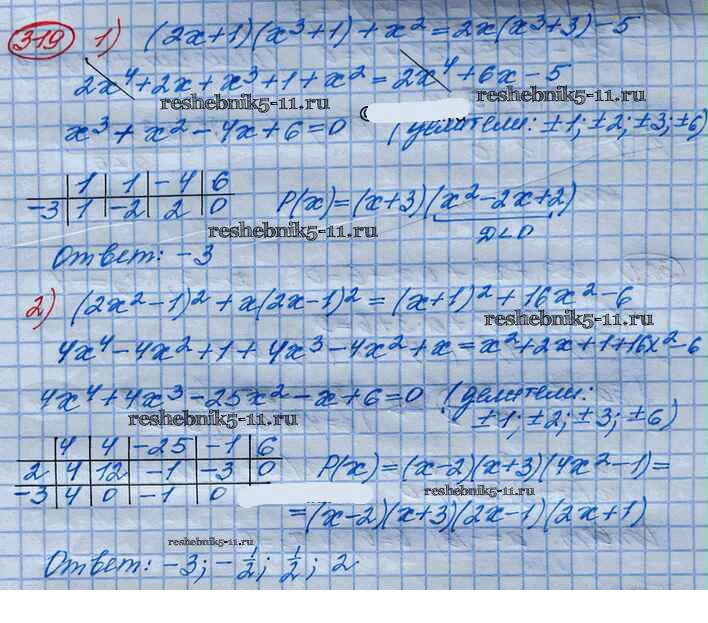 319 1) (2x+1)(x³+1)+x²=2x(x³+3)-5
2x⁴+2x+x³+1+x²=2x⁴+6x-5
reshebnik5-11.ru reshebnik5-11.ru
x³+x²-4x+6=0 (делители: ±1; ±2; ±3; ±6)
1 | 1 | -4 | 6
-3 | 1 | -2 | 2 | 0 P(x)=(x+3)(x²-2x+2)
D<0
reshebnik5-11.ru
Ответ: -3
2) (2x²-1)²+x(2x-1)²=(x+1)²+16x²-6
reshebnik5-11.ru
4x⁴-4x²+1+4x³-4x²+x=x²+2x+1+16x²-6
4x⁴+4x³-25x²-x+6=0 (делители:
±1; ±2; ±3; ±6)
reshebnik5-11.ru
4 | 4 | -25 | -1 | 6
2 | 4 | 12 | -1 | -3 | 0 P(x)=(x-2)(x+3)(4x²-1)=
-3 | 4 | 0 | -1 | 0
reshebnik5-11.ru
=(x-2)(x+3)(2x-1)(2x+1)
reshebnik5-11.ru
Ответ: -3; -1/2; 1/2; 2